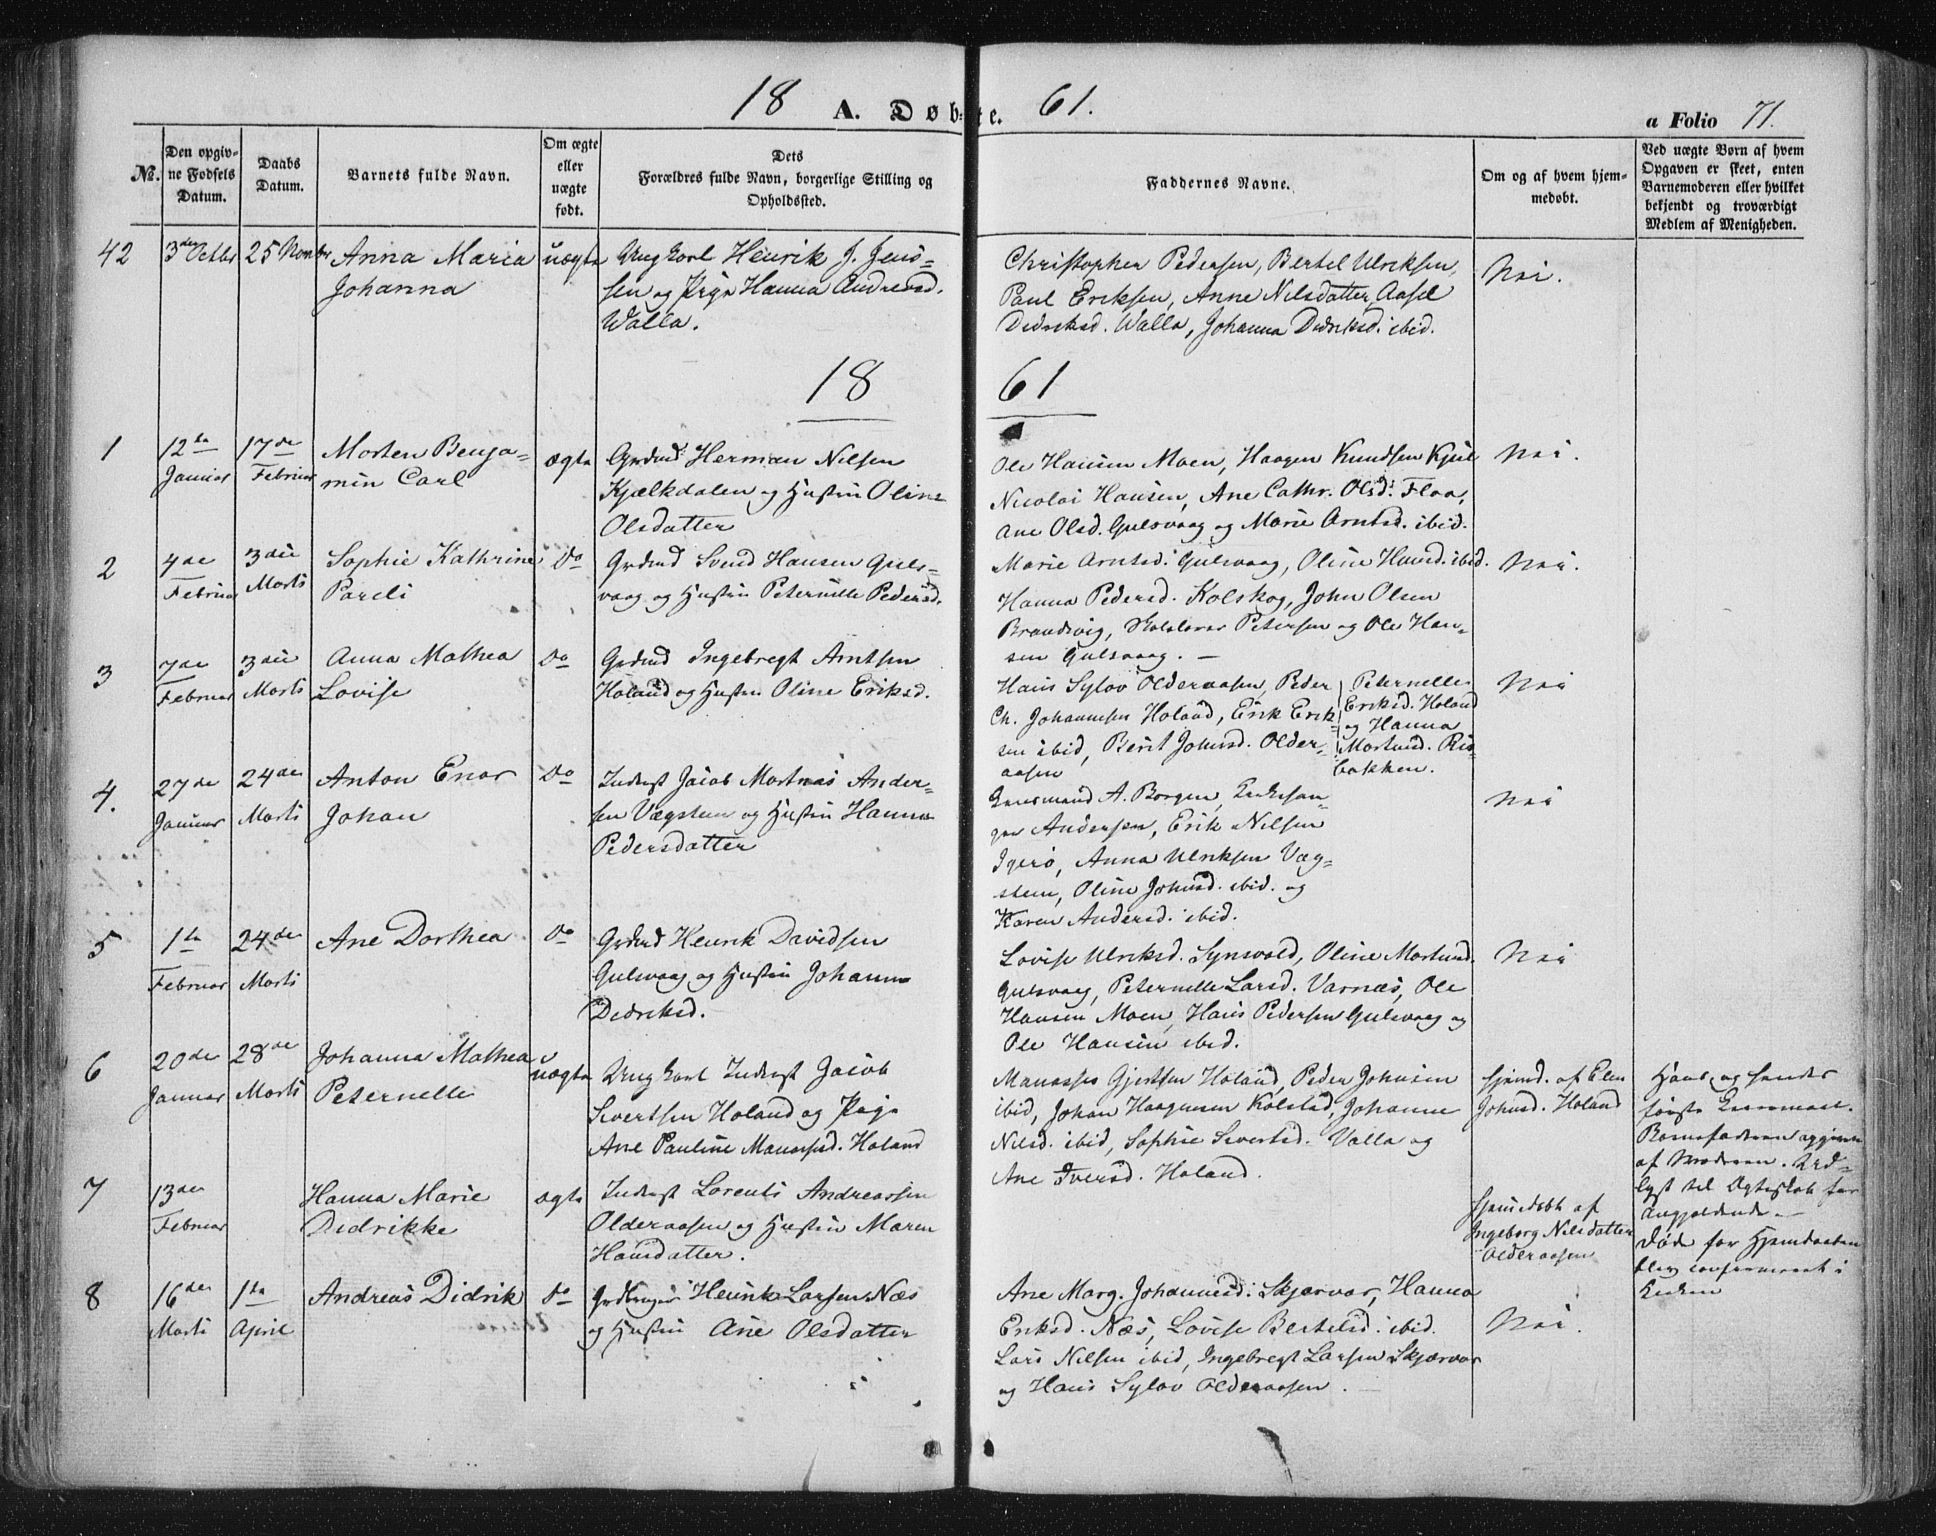 18 A. Døbte. 61.
a Folio 71.
No.
Den opgivne Fødsels Datum.
Daabs Datum.
Barnets fulde Navn.
Om ægte eller uægte født.
Dets Forældres fulde Navn, borgerlige Stilling og Opholdssted.
Faddernes Navne.
Om og af hvem hjemmedøbt.
Ved uægte Børn af hvem Opgaven er skeet, enten Barnemoderen eller hvilket bekjendt og troværdigt Medlem af Menigheden.
42
3die Octbr
25 Novmbr
Anna Maria
Johanna
uægte
Ungkarl Henrik J. Jens-
sen og Pige Hanna Andreasd.
Walla.
Christopher Pedersen, Bertel Ulriksen,
Paul Eriksen, Anne Nilsdatter, Aasel
Didriksd. Walla, Johanna Didriksd. ibid.
Nei.
18 61
1
12te
Januar
17de
Februar
Morten Benja-
min Carl
ægte
Grdmd Herman Nilsen
Kjelkdalen og Hustru Oline
Olsdatter
Ole Hansen Moen, Haagen Knudsen Kjul
Nicolai Hansen, Ane Cathr. Olsd. Floa,
Ane Olsd. Gulsvaag og Marie Arntsd. ibid.
Nei.
2
4de
Februar
3die
Marts
Sophie Kathrine
Pareli
Do
Grdmd Svend Hansen Guls-
vaag og Hustru Peternille Pedersd.
Marie Arntsd. Gulsvaag, Oline Hansd. ibid.
Hanna Pedersd. Kolskog, John Olsen
Brandsvig, Petersen og Ole Han-
sen Gulsvaag. —
Nei.
3
7de
Februar
3die
Marts
Anna Mathea
Lovise
Do
Grdmd Ingebregt Arntsen
Holand og Hustru Oline Eriksd.
Hans Sylov Olderaasen, Peder
Ch. Johannesen Holand, Erik Erik-
sen ibid, Berit Johnsd. Older-
aasen
Peternelle
Eriksd. Holand
og Hanna
Mortensd. Ris-
bakken.
Nei
4.
27de
Januar
24de
Marts
Anton Enor
Johan
Do
Inderst Jacob Mortnas Ander-
sen Vægsteen og Hustru Hanna
Pedersdatter
Lensmand A. Borgen, Kirkesan-
ger Andersen, Erik Nilsen
Igerø, Anna Ulriksen Væg-
steen, Oline Johnsd. ibid. og
Karen Andersd. ibid.
Nei
5
1te
Februar
24de
Marts
Ane Dorthea
Do
Grdmd Henrik Davidsen
Gulsvaag og Hustru Johanna
Didriksd.
Lovise Ulriksd. Synsvold, Oline Mortensd.
Gulsvaag, Peternelle Larsd. Varnæs, Ole
Hansen Moen, Hans Pedersen Gulsvaag og
Ole Hansen ibid.
Nei
6
20de
Januar
28de
Marts
Johanna Mathea
Peternelle
uægte
Ungkarl Inderst Jacob
Sivertsen Holand og Pige
Ane Pauline Manassesd. Holand
Manasses Gjertsen Holand, Peder Johnsen
ibid, Johan Haagensen Kolstad, Johanne
Nilsd. ibid, Sophie Sivertsd. Valla og
Ane Iversd. Holand.
hjemd. af Elen
Johnsd. Holand
Hans og hendes
første Leiermaal.
Barnefaderen opgiven
af Moderen. Ud-
lyst til Ægteskab for
angjældende. —
7
13de
Februar
Hanna Marie
Didrikke
ægte
Inderst Lorents Andreassen
Olderaasen og Hustru Maren
Hansdatter.
Hjemmedøbt af
Ingeborg Nilsdatter
Olderaasen
Døde før Hjemdaaben
blev confirmeret i
Kirken
8
16de
Marts
1te
April
Andreas Didrik
Do
Grdbruger Henrik Larsen Næs
og Hustru Ane Olsdatter
Ane Marg. Johannesd. Skjærvær, Hanna
Eriksd. Næs, Lovise Bertelsd. ibid.
Lars Nilsen ibid, Ingebregt Larsen Skjærvær
og Hans Sylov Olderaasen. —
Nei.